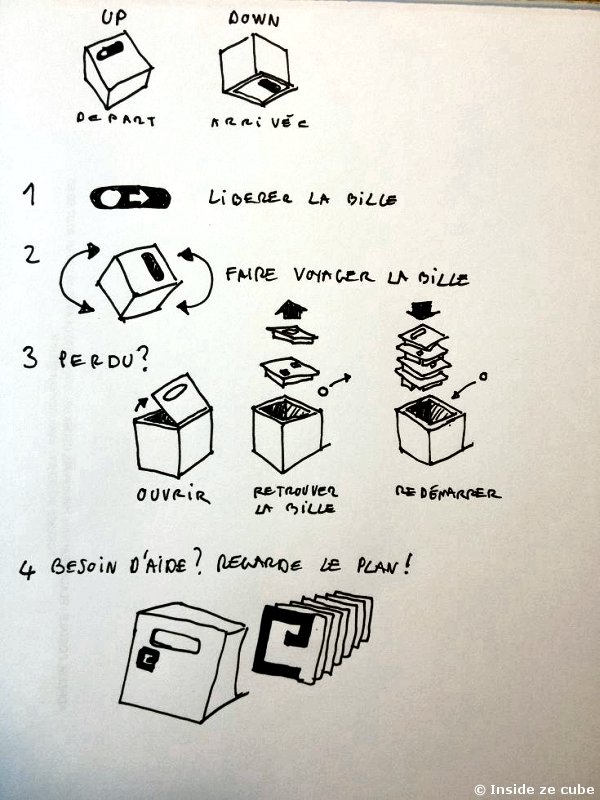 UP DOWN
DEPART ARRIVÉE
1 LIBERER LA BILLE
2 FAIRE VOYAGER LA BILLE
3 PERDU?
OUVRIR RETROUVER LA BILLE REDÉMARRER
4 BESOIN D'AIDE? REGARDE LE PLAN!
© Inside ze cube